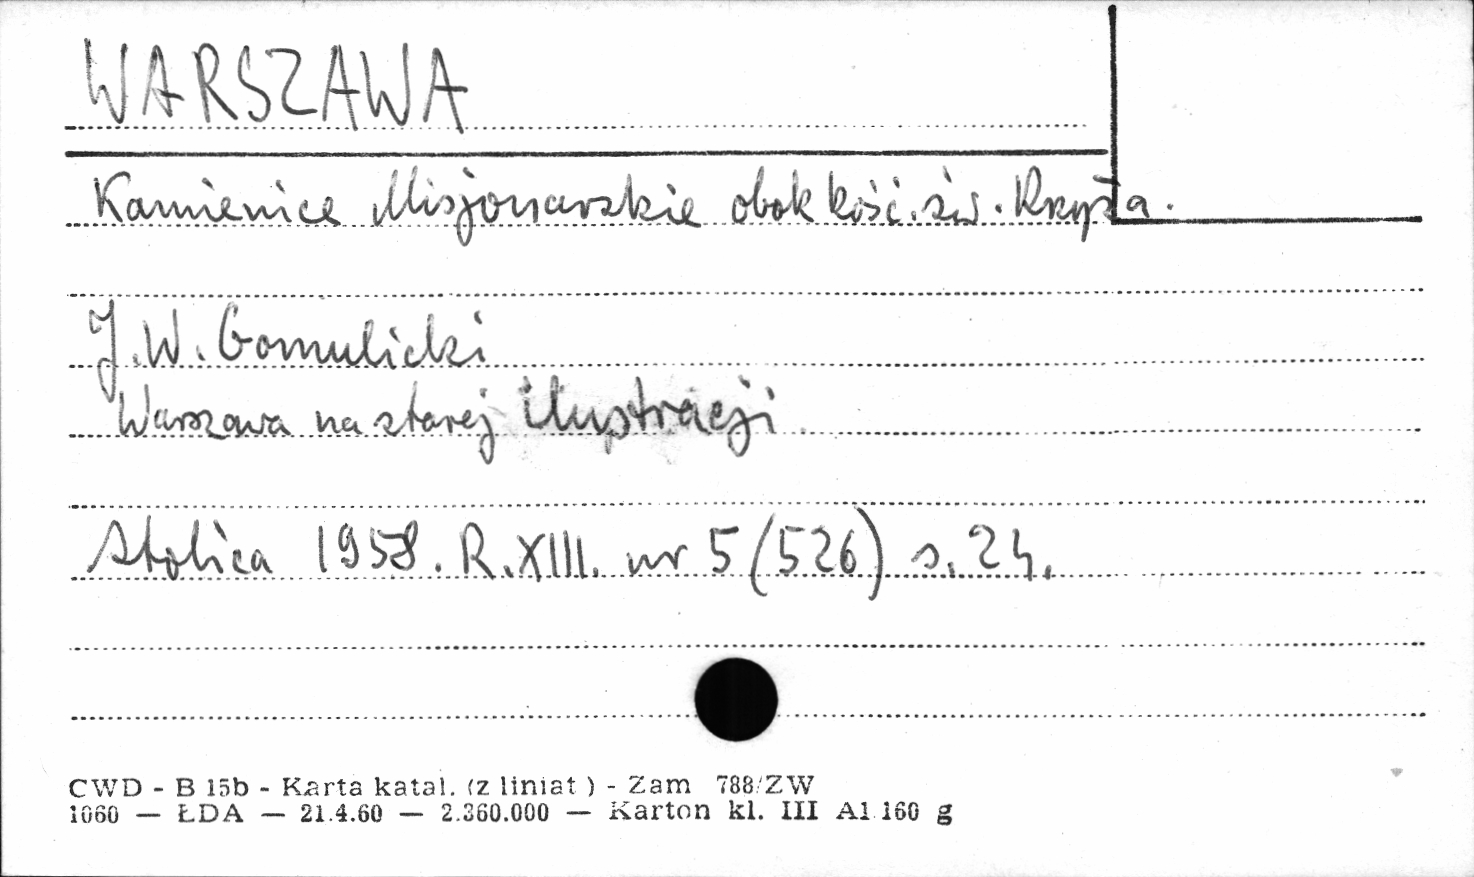 WARSZAWA
Kamienice Misjonarskie obok kość. św. Krzyża.
J.W. Gomulicki
Warszawa na starej ilustracji.
Stolica 1958. R.XIII. nr 5 (526) s. 24.
CWD - B 15b - Karta katal. (z liniat ) - Zam 788/ZW
1060 — ŁDA — 21.4.60 — 2.360.000 — Karton kl. III A1 160 g